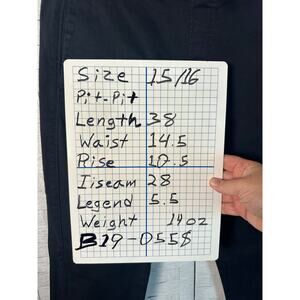 Size 15/16
Pit-Pit
Length 38
Waist 14.5
Rise 10.5
Iiseam 28
Legend 5.5
Weight 14 oz
B19-0558